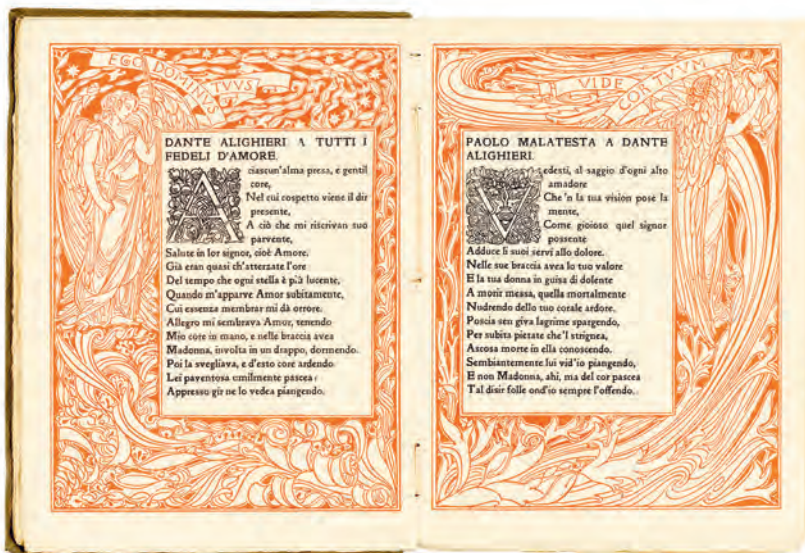 EGO DOMINVS TVVS
DANTE ALIGHIERI A TUTTI I
FEDELI D'AMORE.
A ciascun'alma presa, e gentil
core,
Nel cui cospetto viene il dir
presente,
A ciò che mi riscrivan suo
parvente,
Salute in lor signor, cioè Amore.
Già eran quasi ch'atterzate l'ore
Del tempo che ogni stella è più lucente,
Quando m'apparve Amor subitamente,
Cui essenza membrar mi dà orrore.
Allegro mi sembrava Amor, tenendo
Mio core in mano, e nelle braccia avea
Madonna, involta in un drappo, dormendo.
Poi la svegliava, e d'esto core ardendo
Lei paventosa umilmente pascea:
Appresso gir ne lo vedea piangendo.
VIDE COR TVVM
PAOLO MALATESTA A DANTE
ALIGHIERI.
Vedesti, al saggio d'ogni alto
amadore
Che 'n la tua vision pose la
mente,
Come gioioso quel signor
possente
Adduce li suoi servi allo dolore.
Nelle sue braccia avea lo tuo valore
E la tua donna in guisa di dolente
A morir messa, quella mortalmente
Nudrendo dello tuo corale ardore.
Poscia sen giva lagrime spargendo,
Per subita pietate che'l strignea,
Ascosa morte in ella conoscendo.
Sembiantemente lui vid'io piangendo,
E non Madonna, ahi, ma del cor pascea
Tal disir folle ond'io sempre l'offendo.